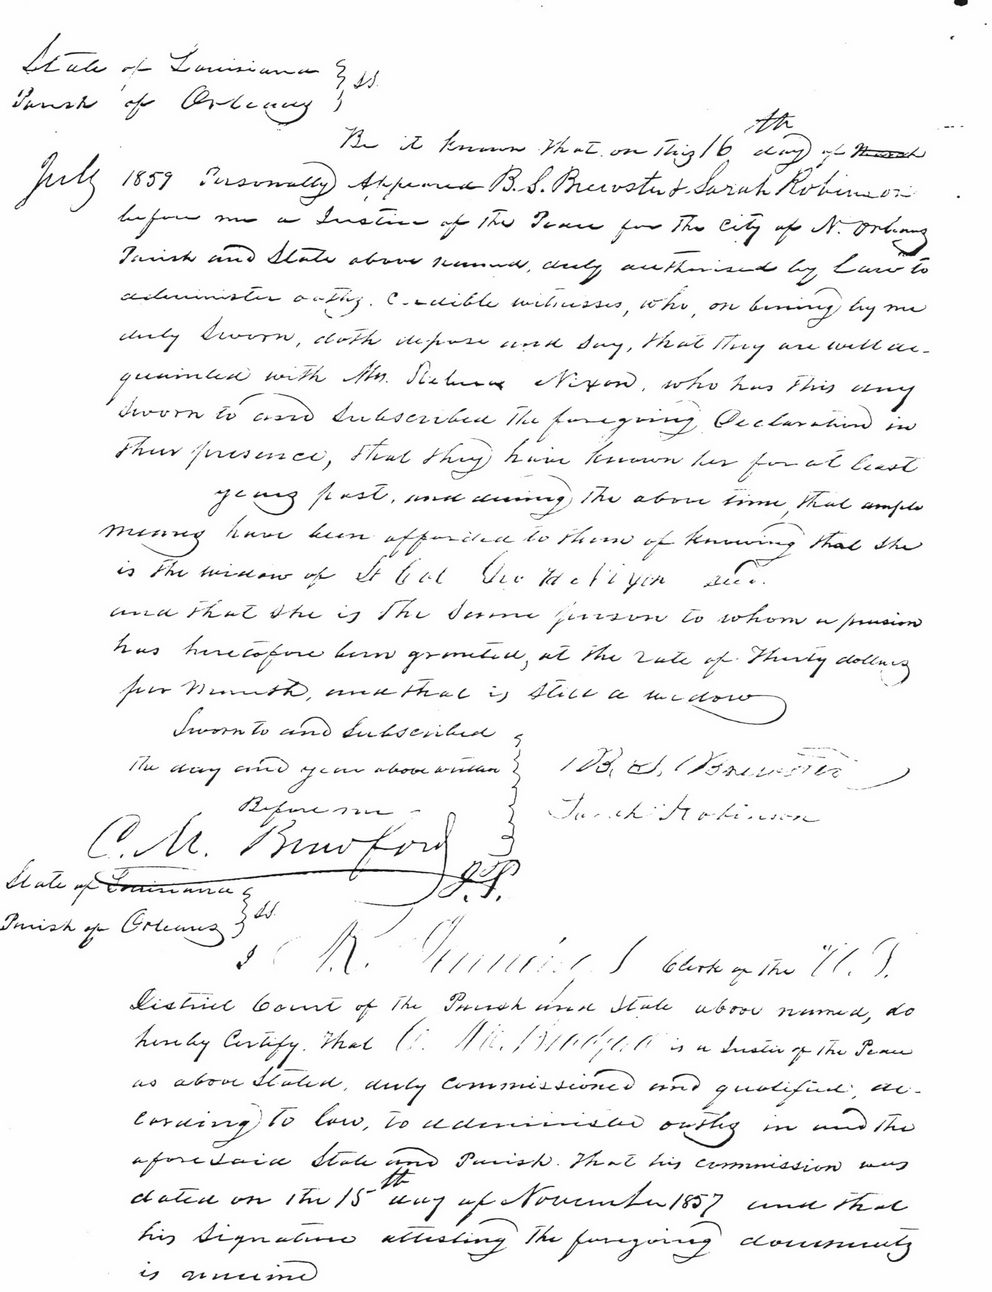 State of Louisiana } SS.
Parish of Orleans
Be it known that on this 16th day of March
July 1859 Personally Appeared B. S. Brewster & Sarah Robinson
before me a Justice of the Peace for the City of N. Orleans
Parish and State above named, duly authorised by Law to
administer oaths. Credible witnesses, who, on being by me
duly Sworn, doth depose and say, that they are well ac-
quainted with Mrs. Nixon, who has this day
Sworn to and Subscribed the foregoing Declaration in
their presence, that they have known her for at least
years past, and during the above time, that ample
means have been afforded to them of knowing that she
is the widow of Lt Col Geo H Nixon decd.
and that she is the Same person to whom a pension
has heretofore been granted, at the rate of Thirty dollars
per Month, and that is still a widow
Sworn to and Subscribed
the day and year above written
B. S. Brewster
Before me
Sarah Robinson
C. M. Bradford
J.P.
State of Louisiana } SS.
Parish of Orleans
I R. Clerk of the U. S.
District Court of the Parish and State above named, do
hereby Certify, that C. M. Bradford is a Justice of the Peace
as above Stated, duly commissioned and qualified, ac-
cording to law, to administer oaths in and the
aforesaid State and Parish. That his commission was
dated on the 15th day of November 1857 and that
his Signature attesting the foregoing documents
is genuine